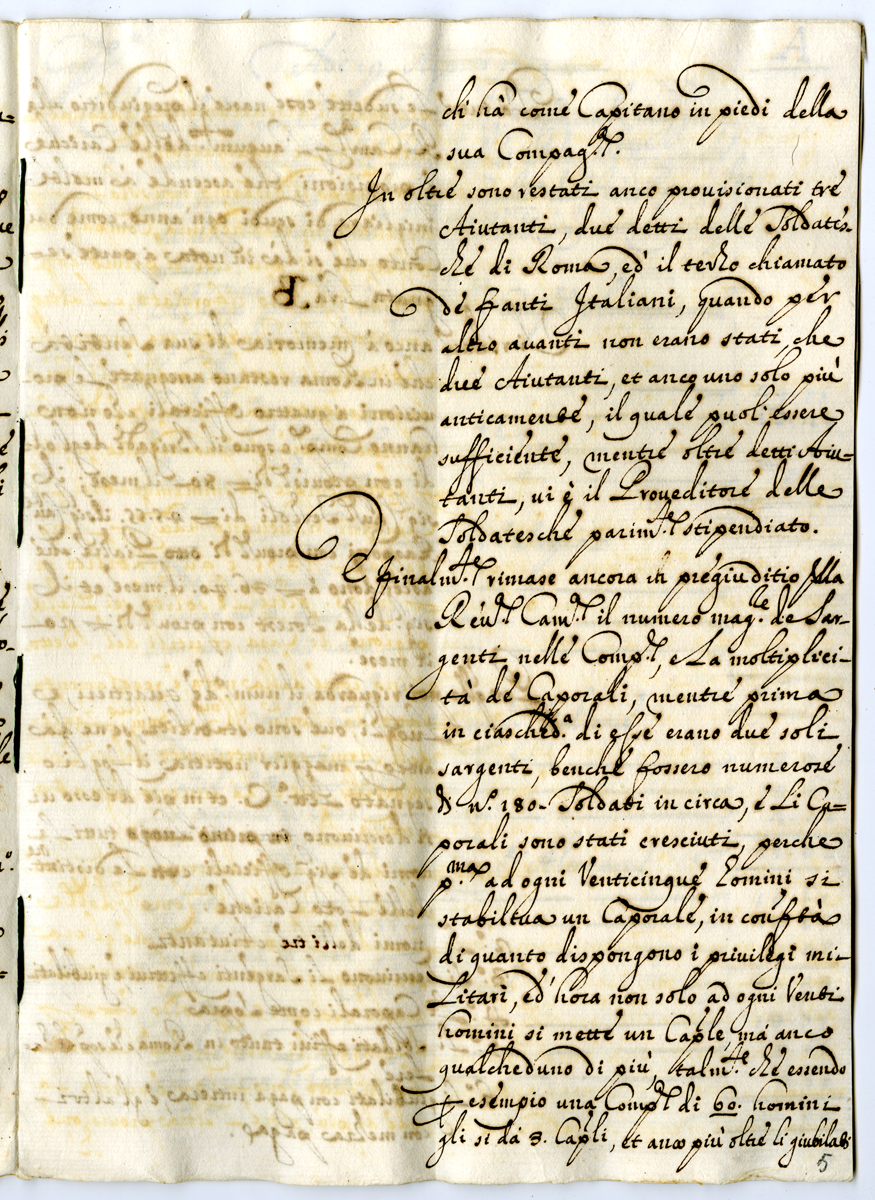 ch'hà come Capitano in piedi della
sua Compag.ª
In oltre sono restati anco provisionati tre
Aiutanti, due detti delle Soldates-
che di Roma, ed il terzo chiamato
de fanti Italiani, quando per
altro avanti non erano stati, che
due Aiutanti, et anco uno solo più
anticamente, il quale puol' essere
sufficiente, mentre oltre detti Aiu=
tanti, vi è il Proveditore delle
Soldatesche parim.te stipendiato.
E finalm.te rimase ancora in pregiuditio della
Reu.ª Cam.ª il numero mag.re de Sar-
genti nelle Comp.ª, e La moltiplici-
tà de Caporali, mentre prima
in ciasched.a di esse erano due soli
sargenti, benche fossero numerose
di n.º 180. Soldati in circa, e Li Ca=
porali sono stati cresciuti, perche
p.ma ad ogni Venticinque homini si
stabiliva un Caporale, in
di quanto dispongono i privilegi mi-
Litari, ed' hora non solo ad ogni Venti
homini si mette un Cap'le, ma anco
qualcheduno di più, talm.te che essendo
esempio una Comp.ª di 60. homini
gli si dà 3. Cap'li, et anco più oltre li giubilati
5